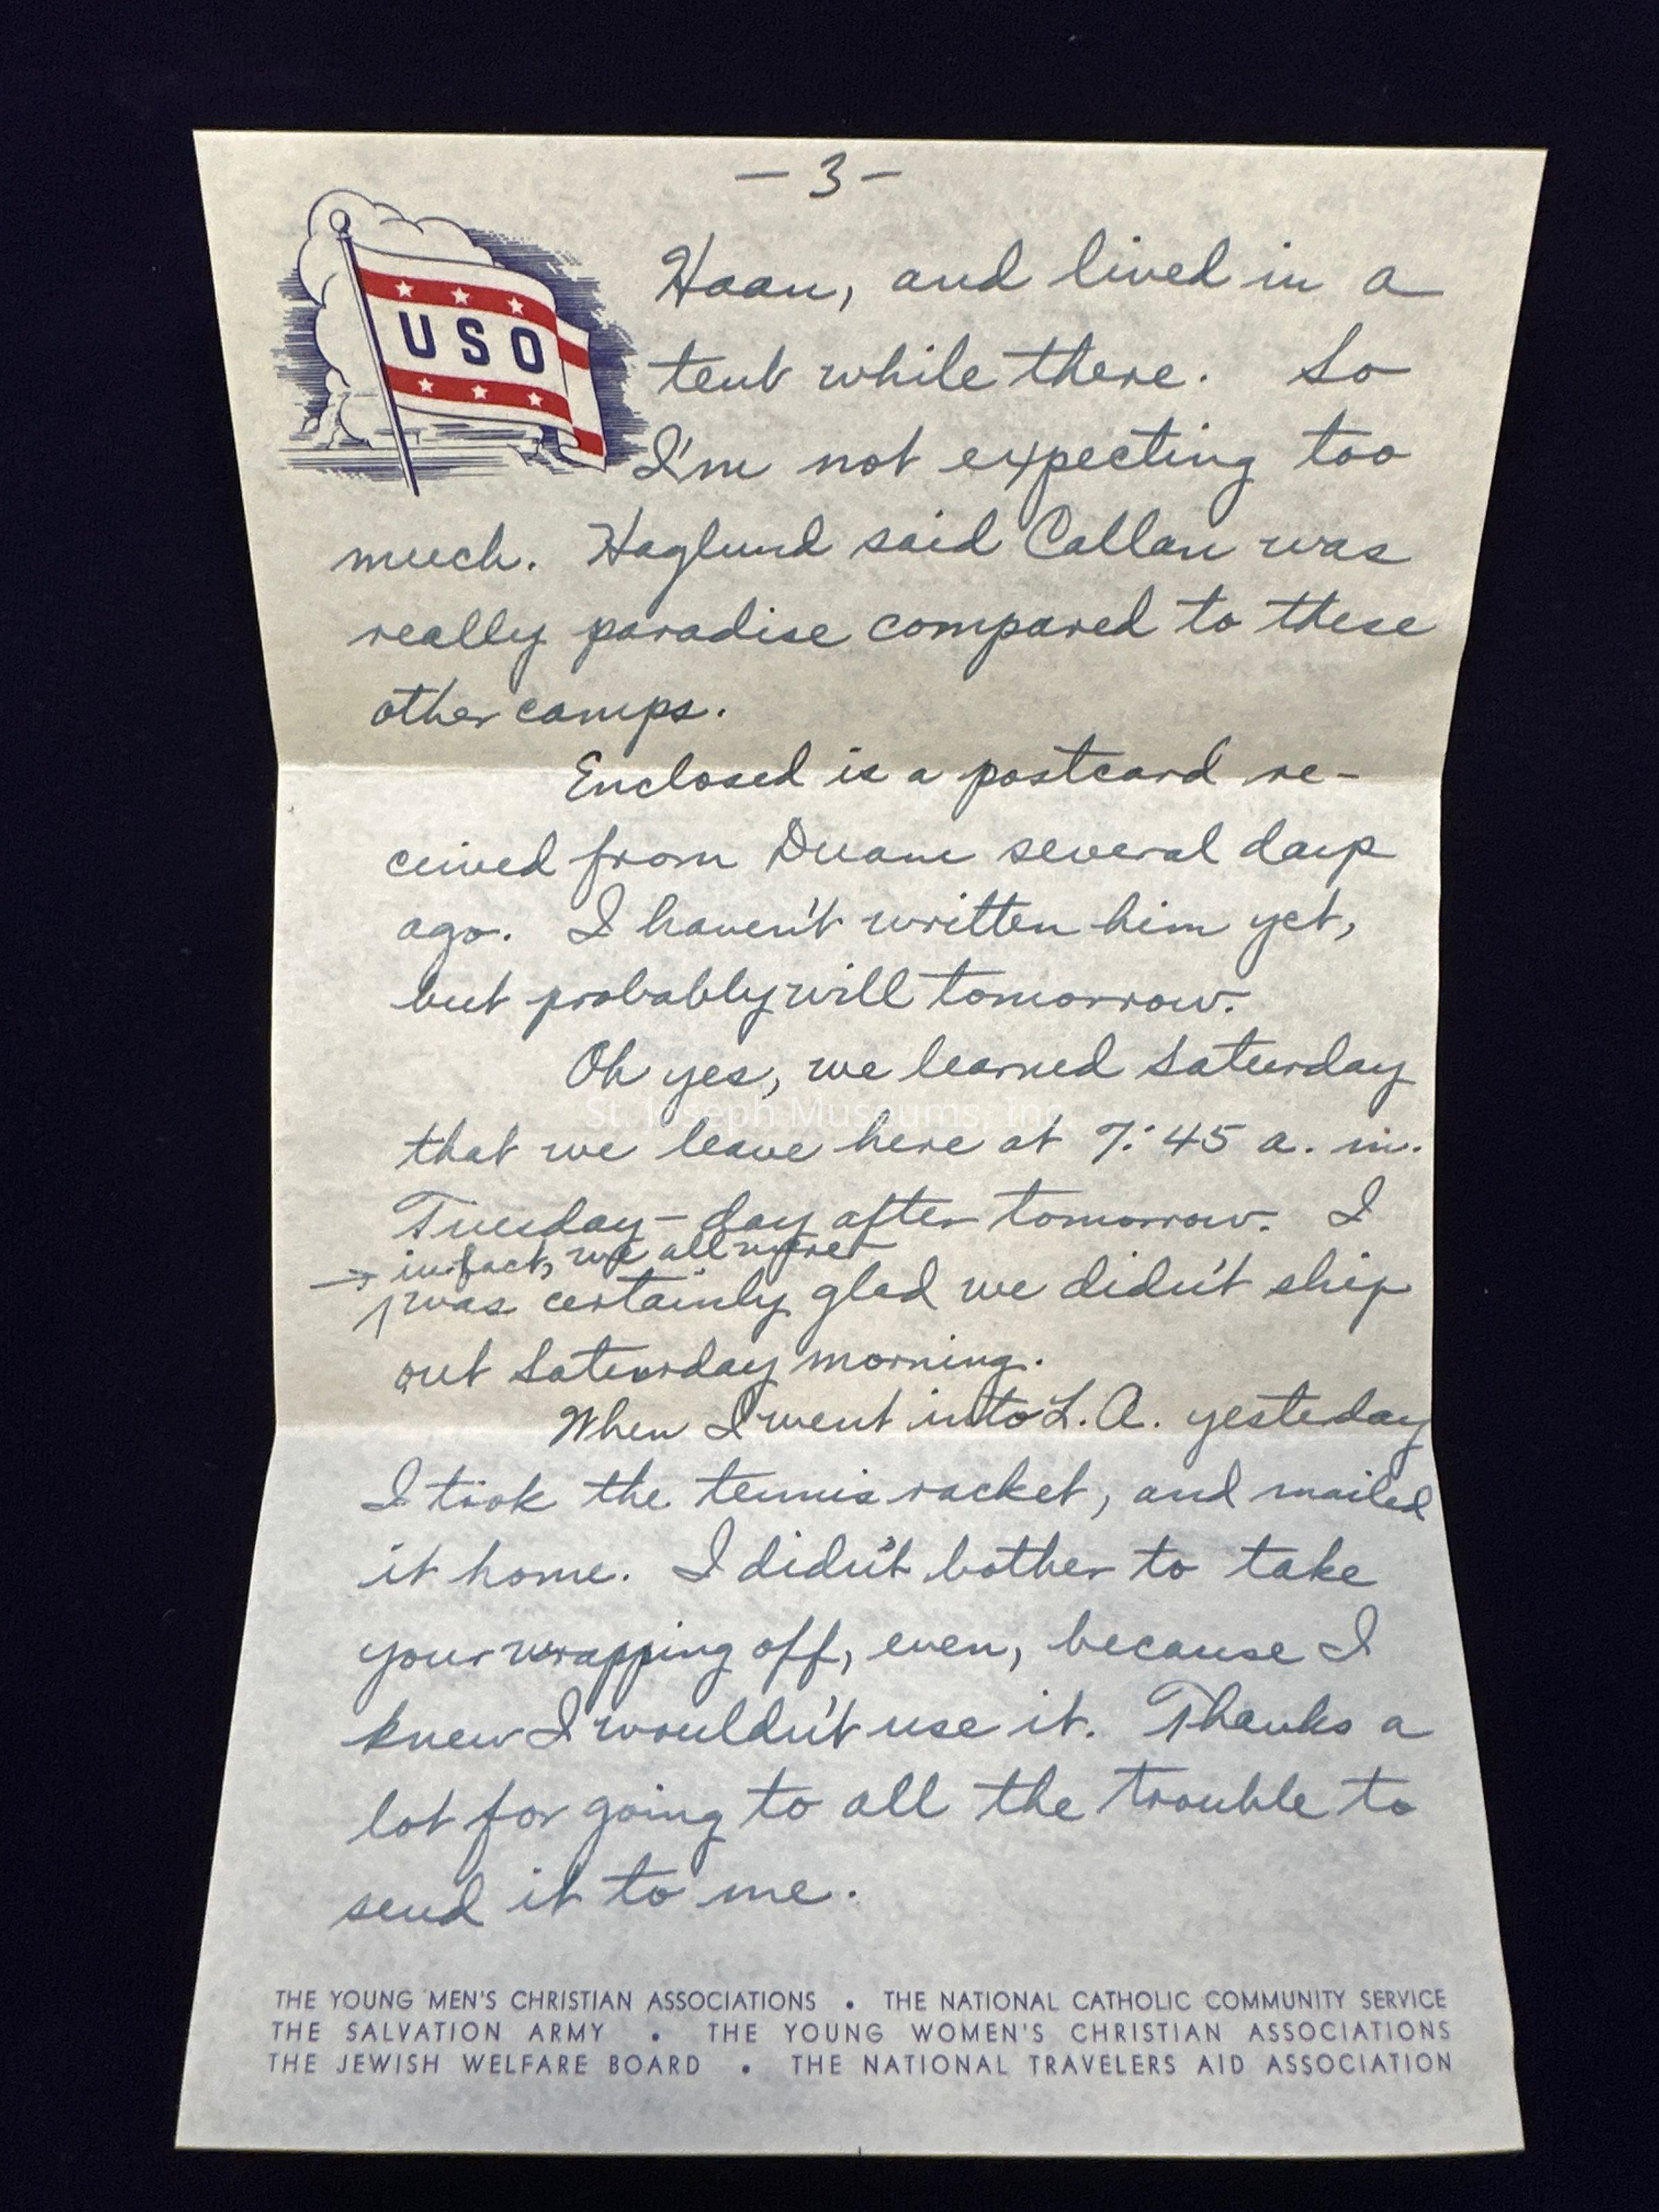 - 3 -
USO
Haan, and lived in a
tent while there. So
I'm not expecting too
much. Haglund said Callan was
really paradise compared to these
other camps.
Enclosed is a postcard re-
ceived from Duane several days
ago. I haven't written him yet,
but probably will tomorrow.
Oh yes, we learned Saturday
that we leave here at 7:45 a. m.
Tuesday - day after tomorrow. I
→ in fact, we all were
was certainly glad we didn't ship
out Saturday morning.
When I went into L.A. yesteday
I took the tennis racket, and mailed
it home. I didn't bother to take
your wrapping off, even, because I
knew I wouldn't use it. Thanks a
lot for going to all the trouble to
send it to me.
THE YOUNG MEN'S CHRISTIAN ASSOCIATIONS • THE NATIONAL CATHOLIC COMMUNITY SERVICE
THE SALVATION ARMY • THE YOUNG WOMEN'S CHRISTIAN ASSOCIATIONS
THE JEWISH WELFARE BOARD • THE NATIONAL TRAVELERS AID ASSOCIATION
St. Joseph Museums, Inc.